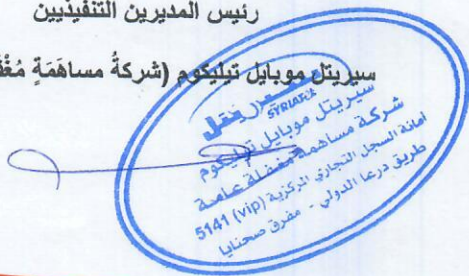 رئيس المديرين التنفيذيين
سيريتل موبايل تيليكوم (شركةُ مساهَمَةٍ مُغْفَ
SYRIATEL
سيريتل موبايل تيليكوم
شركة مساهمة مغفلة عامة
أمانة السجل التجاري المركزية (vip) 5141
طريق درعا الدولي - مفرق صحنايا